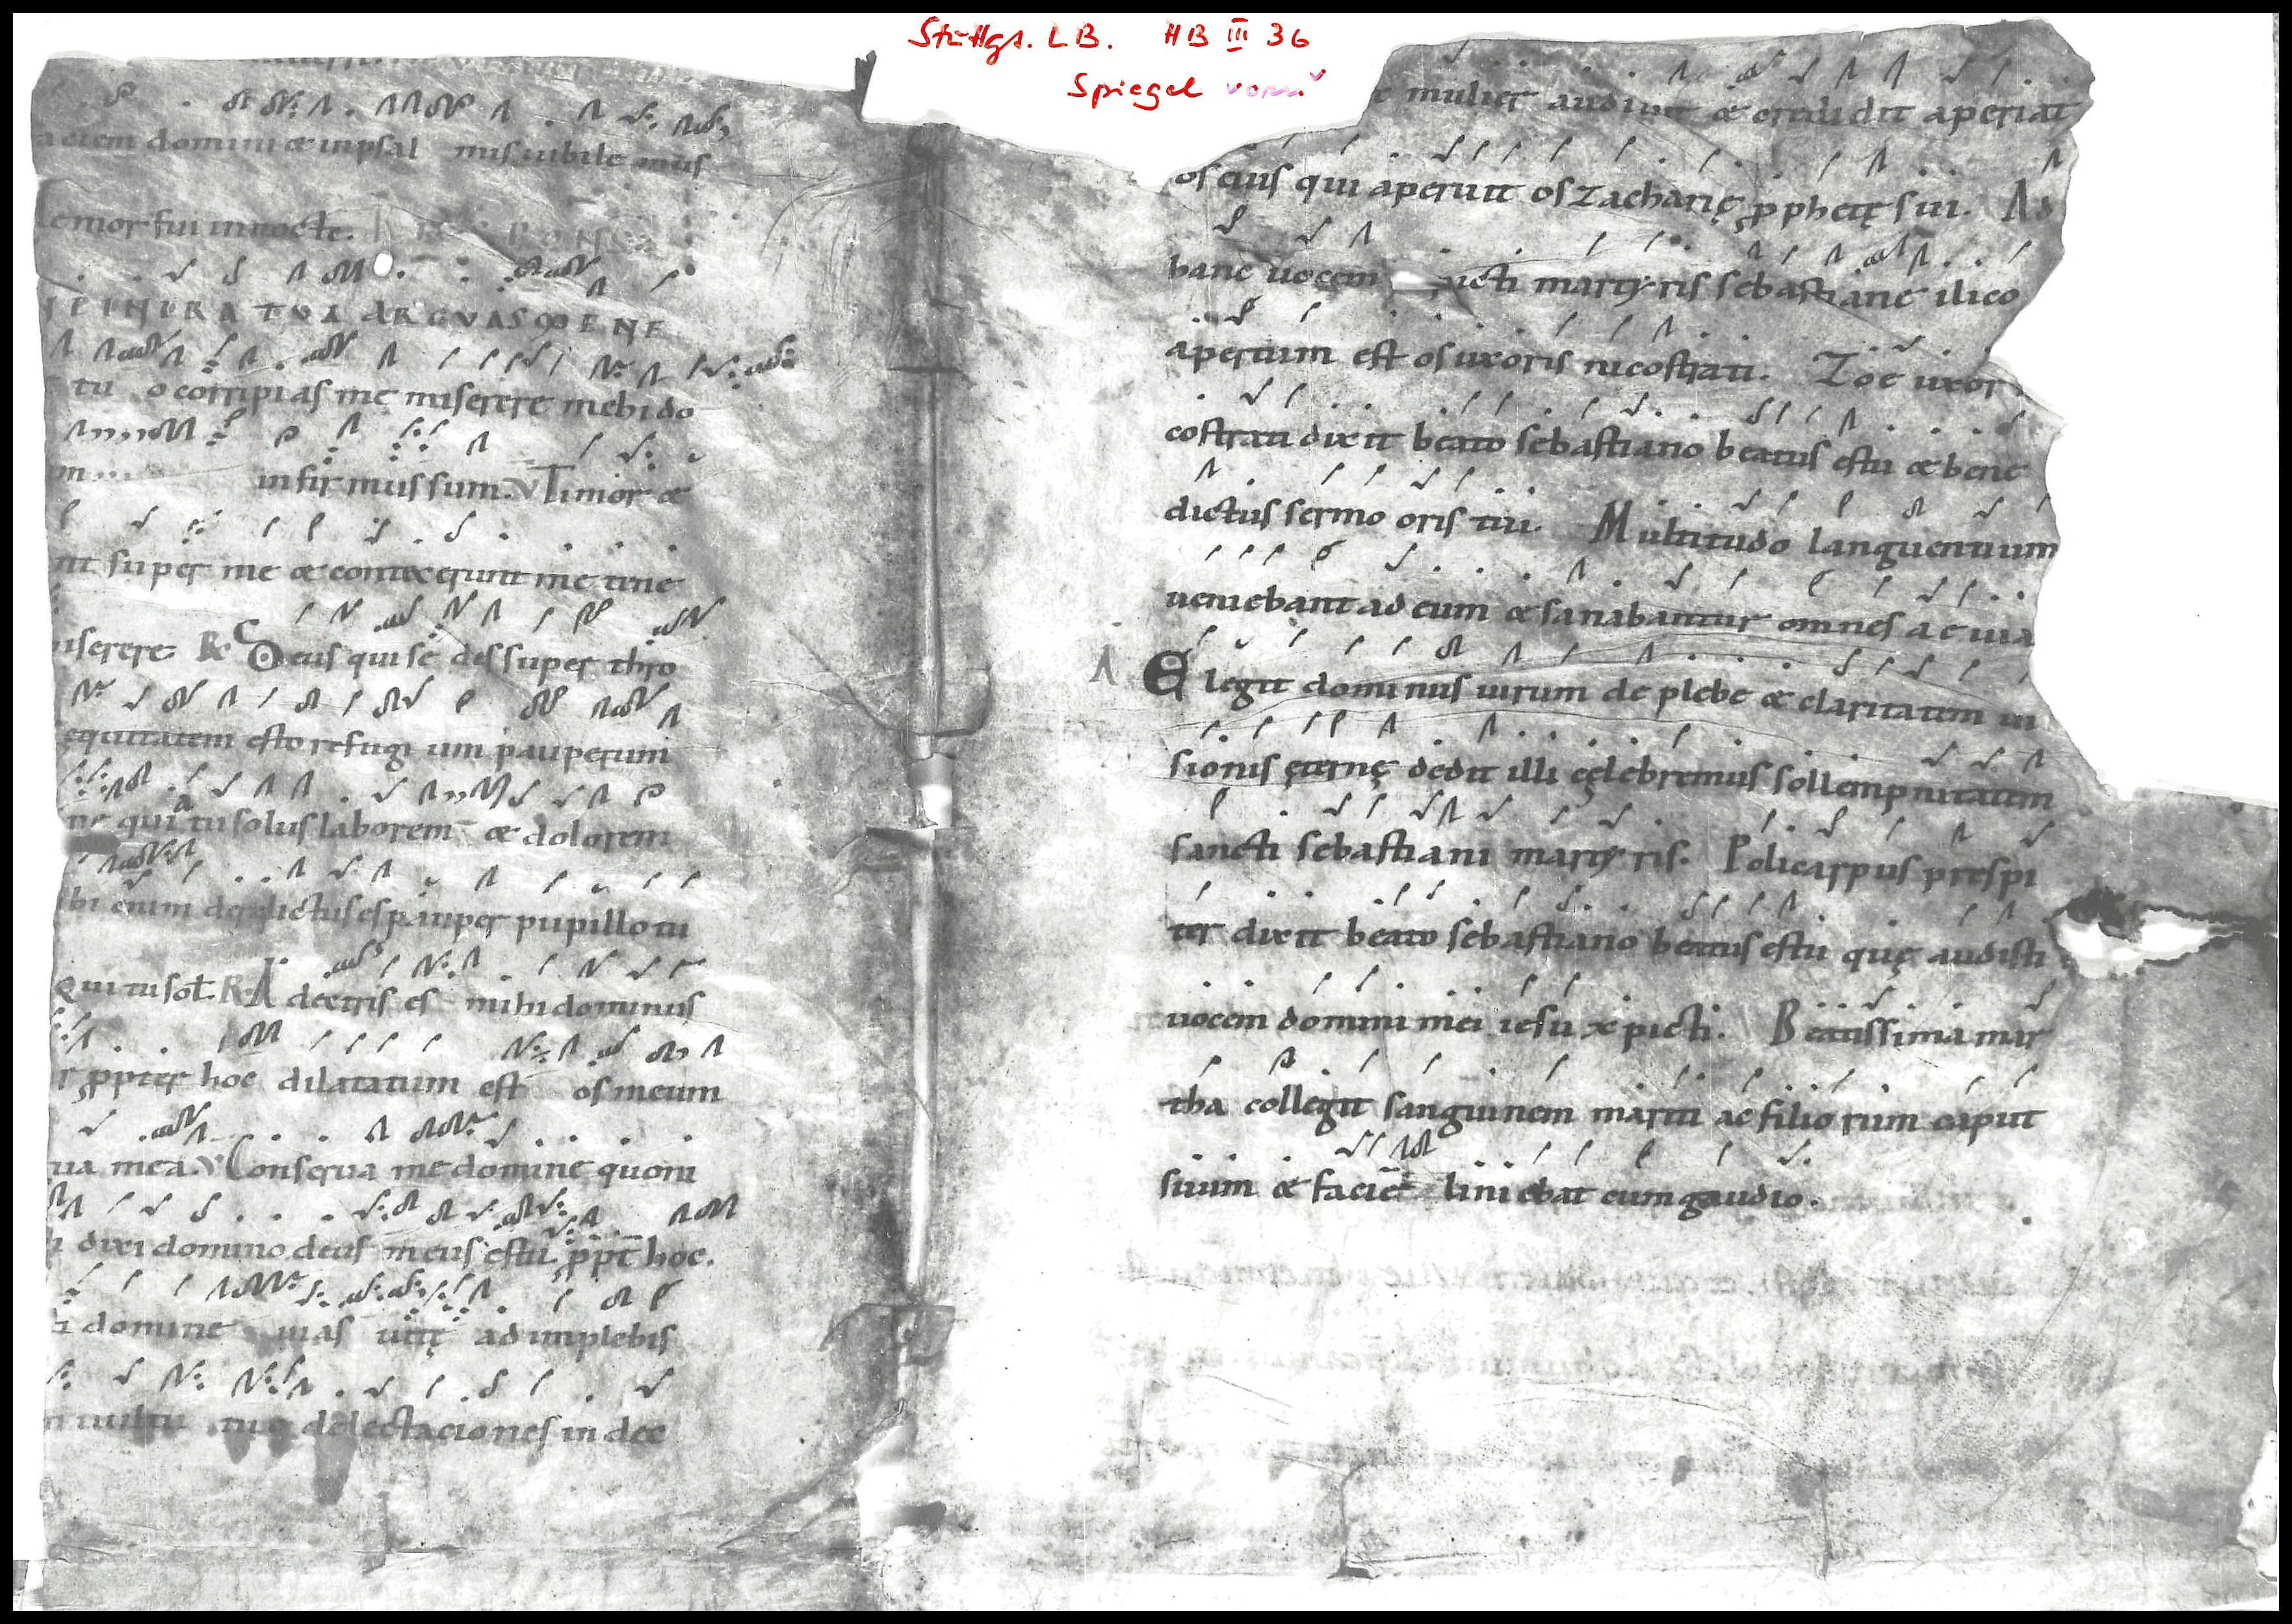 Stuttgt. L.B. HB III 36
Spiegel vorn
aciem domini & inpsal mis iubile mus
emor fui in nocte. RESPONSO
NE IN IRA TUA ARGUAS ME NE
tu o corripias mę miserere mehi do
m... infirmus sum. V Timor &
nt super me & contexerunt me tene
iserere R Deus qui sedes super thro
equitatem esto refugium pauperum
ne quia tu solus laborem & dolorem
ibi enim derelictus es pauper pupillo tu
Qui tu sol. R A dextris es mihi dominus
r ꝓpter hoc dilatatum est os meum
ua mea. V Conserva me domine quoni
i dixi domino deus meus es tu. ꝓpt hoc.
i domine uias uitę adimplebis
n uultu tuo delectaciones in dex
mulier audiuit & credidit aperiat
os eius qui aperuit os zacharię ꝓphetę sui. Ad
hanc uocem xpicti martyris sebastiane ilico
apertum est os uxoris nicostrati. Zoe uxor
costrati dixit beato sebastiano beatus es tu & bene
dictus sermo oris tui. Multitudo languentium
ueniebant ad eum & sanabantur omnes aeuia
A Elegit dominus uirum de plebe & claritatem ui
sionis ęternę dedit illi cęlebremus sollempnitatem
sancti sebastiani martyris. Policarpus prespi
ter dixit beato sebastiano beatus es tu quę audisti
uocem domini mei iesu xpicti. Beatissima mar
tha collegit sanguinem mariti ac filiorum caput
suum & faciē liniebat cum gaudio.